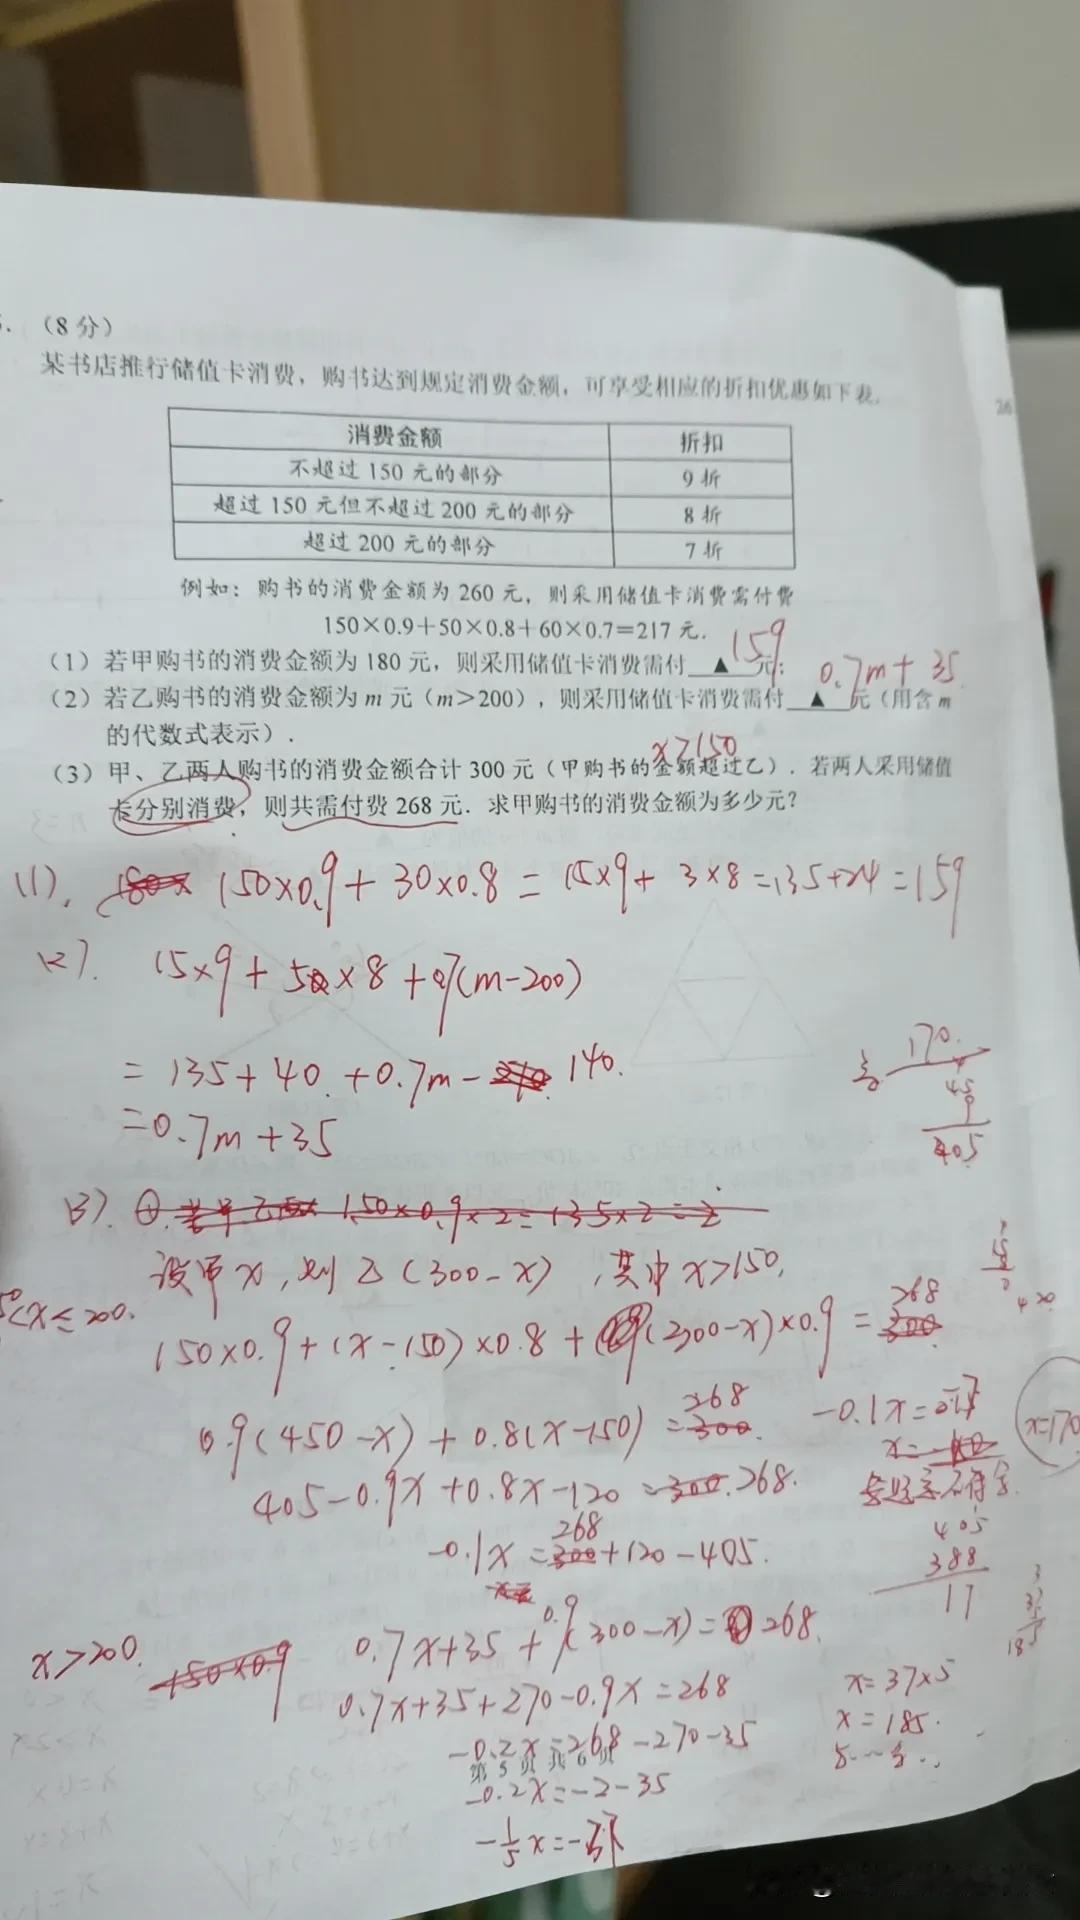 (8分)
某书店推行储值卡消费，购书达到规定消费金额，可享受相应的折扣优惠如下表.
26
消费金额 折扣
不超过150元的部分 9折
超过150元但不超过200元的部分 8折
超过200元的部分 7折
例如：购书的消费金额为260元，则采用储值卡消费需付费
150×0.9+50×0.8+60×0.7=217元.
(1) 若甲购书的消费金额为180元，则采用储值卡消费需付 ▲ 元; 159
(2) 若乙购书的消费金额为m元 (m>200)，则采用储值卡消费需付 ▲ 元 (用含m 0.7m+35
的代数式表示).
x>150
(3) 甲、乙两人购书的消费金额合计300元 (甲购书的金额超过乙). 若两人采用储值
卡分别消费，则共需付费268元. 求甲购书的消费金额为多少元?
(1), 150×0.9+30×0.8=15×9+3×8=135+24=159
(2). 15×9+5×8+0.7(m-200)
=135+40+0.7m-140.
=0.7m+35
170.
45
9
405
(3). ① 150×0.9×2=135×2=2
设甲x, 则乙(300-x), 其中x>150,
<x≤200.
150×0.9+(x-150)×0.8+(300-x)×0.9=268
0.9(450-x)+0.8(x-150)=268
405-0.9x+0.8x-120=268.
-0.1x=268+120-405.
-0.1x=-17
x=170
与题意不符舍.
405
388
17
x>200. 150×0.9 0.7x+35+0.9(300-x)=268.
0.7x+35+270-0.9x=268
-0.2x=268-270-35
第5页 共6页
-0.2x=-2-35
x=37×5
x=185.
37
5
185